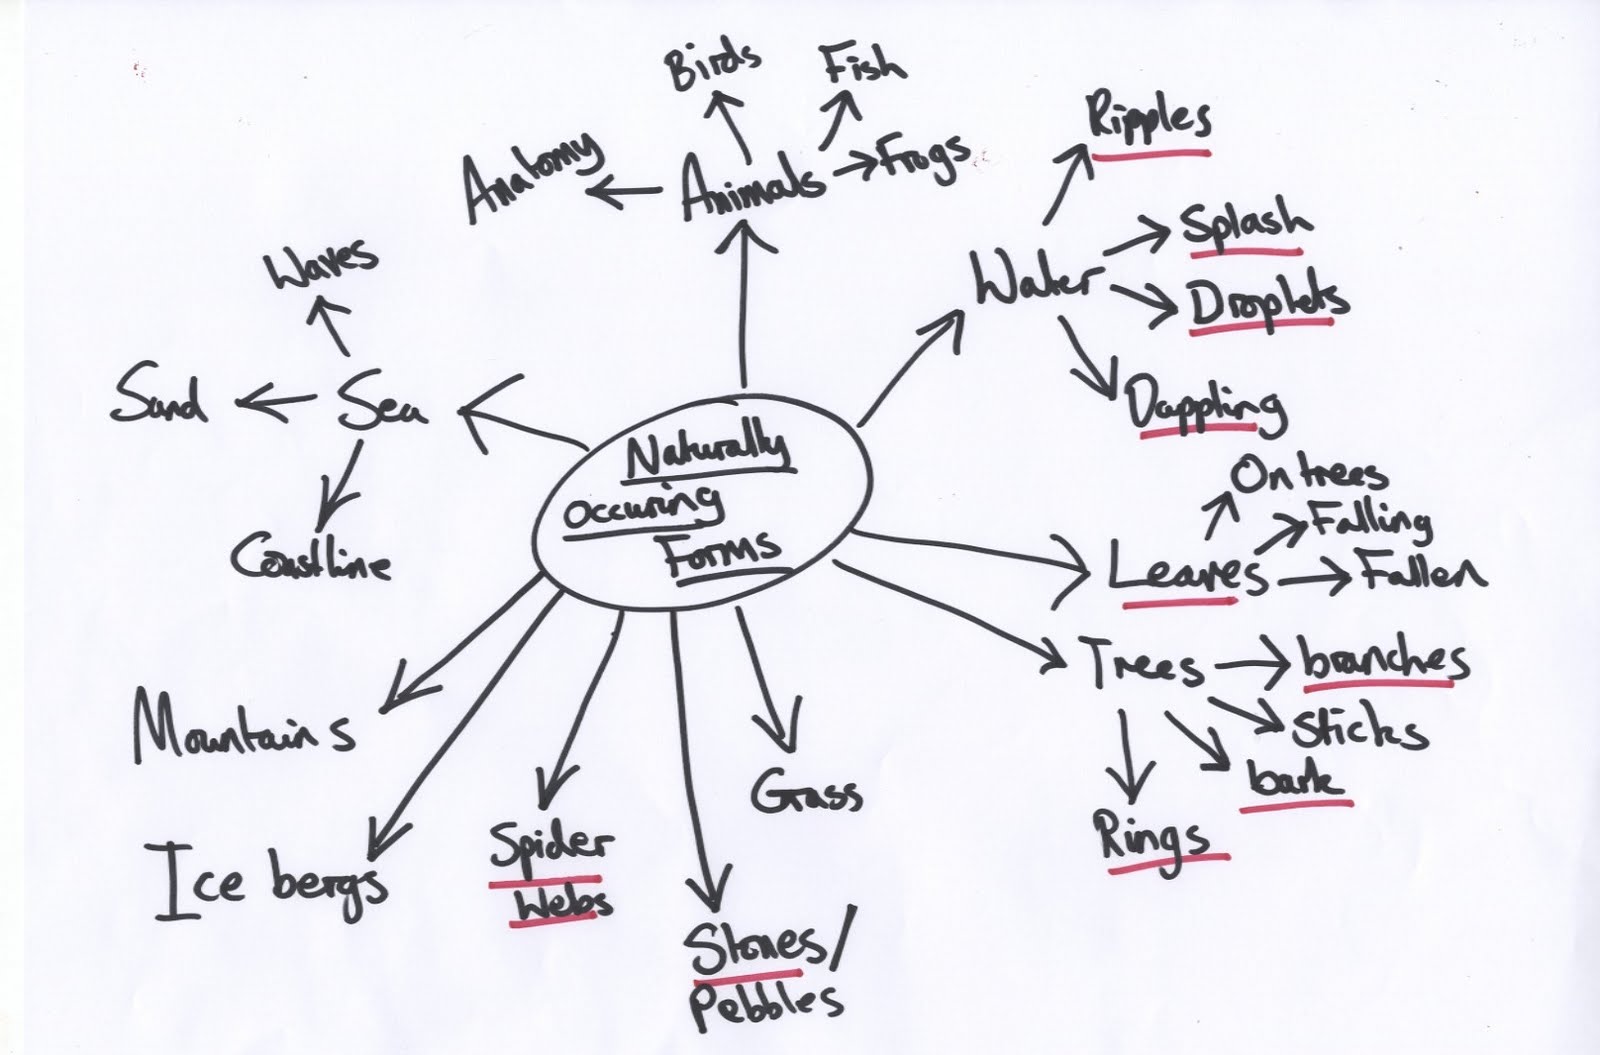 Naturally
occuring
Forms
Animals
Anatomy
Birds
Fish
Frogs
Water
Ripples
Splash
Droplets
Dappling
Leaves
On trees
Falling
Fallen
Trees
branches
Sticks
bark
Rings
Grass
Stones/
Pebbles
Spider
Webs
Ice bergs
Mountains
Sea
Waves
Sand
Coastline